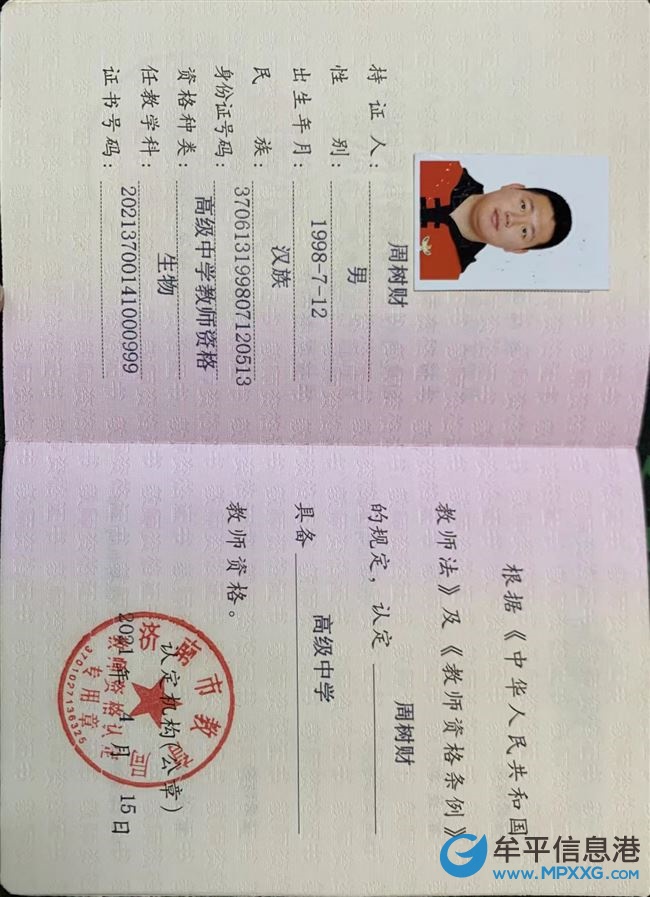 持证人：周树财
性别：男
出生年月：1998-7-12
民族：汉族
身份证号码：370613199807120513
资格种类：高级中学教师资格
任教学科：生物
证书号码：20213700141000999
根据《中华人民共和国
教师法》及《教师资格条例》
的规定，认定 周树财
具备 高级中学
教师资格。
认定机构(公章)
2021年 4月 15日
济南市教育局
教师资格认定
专用章
3701027136325
牟平信息港
www.MPXXG.com